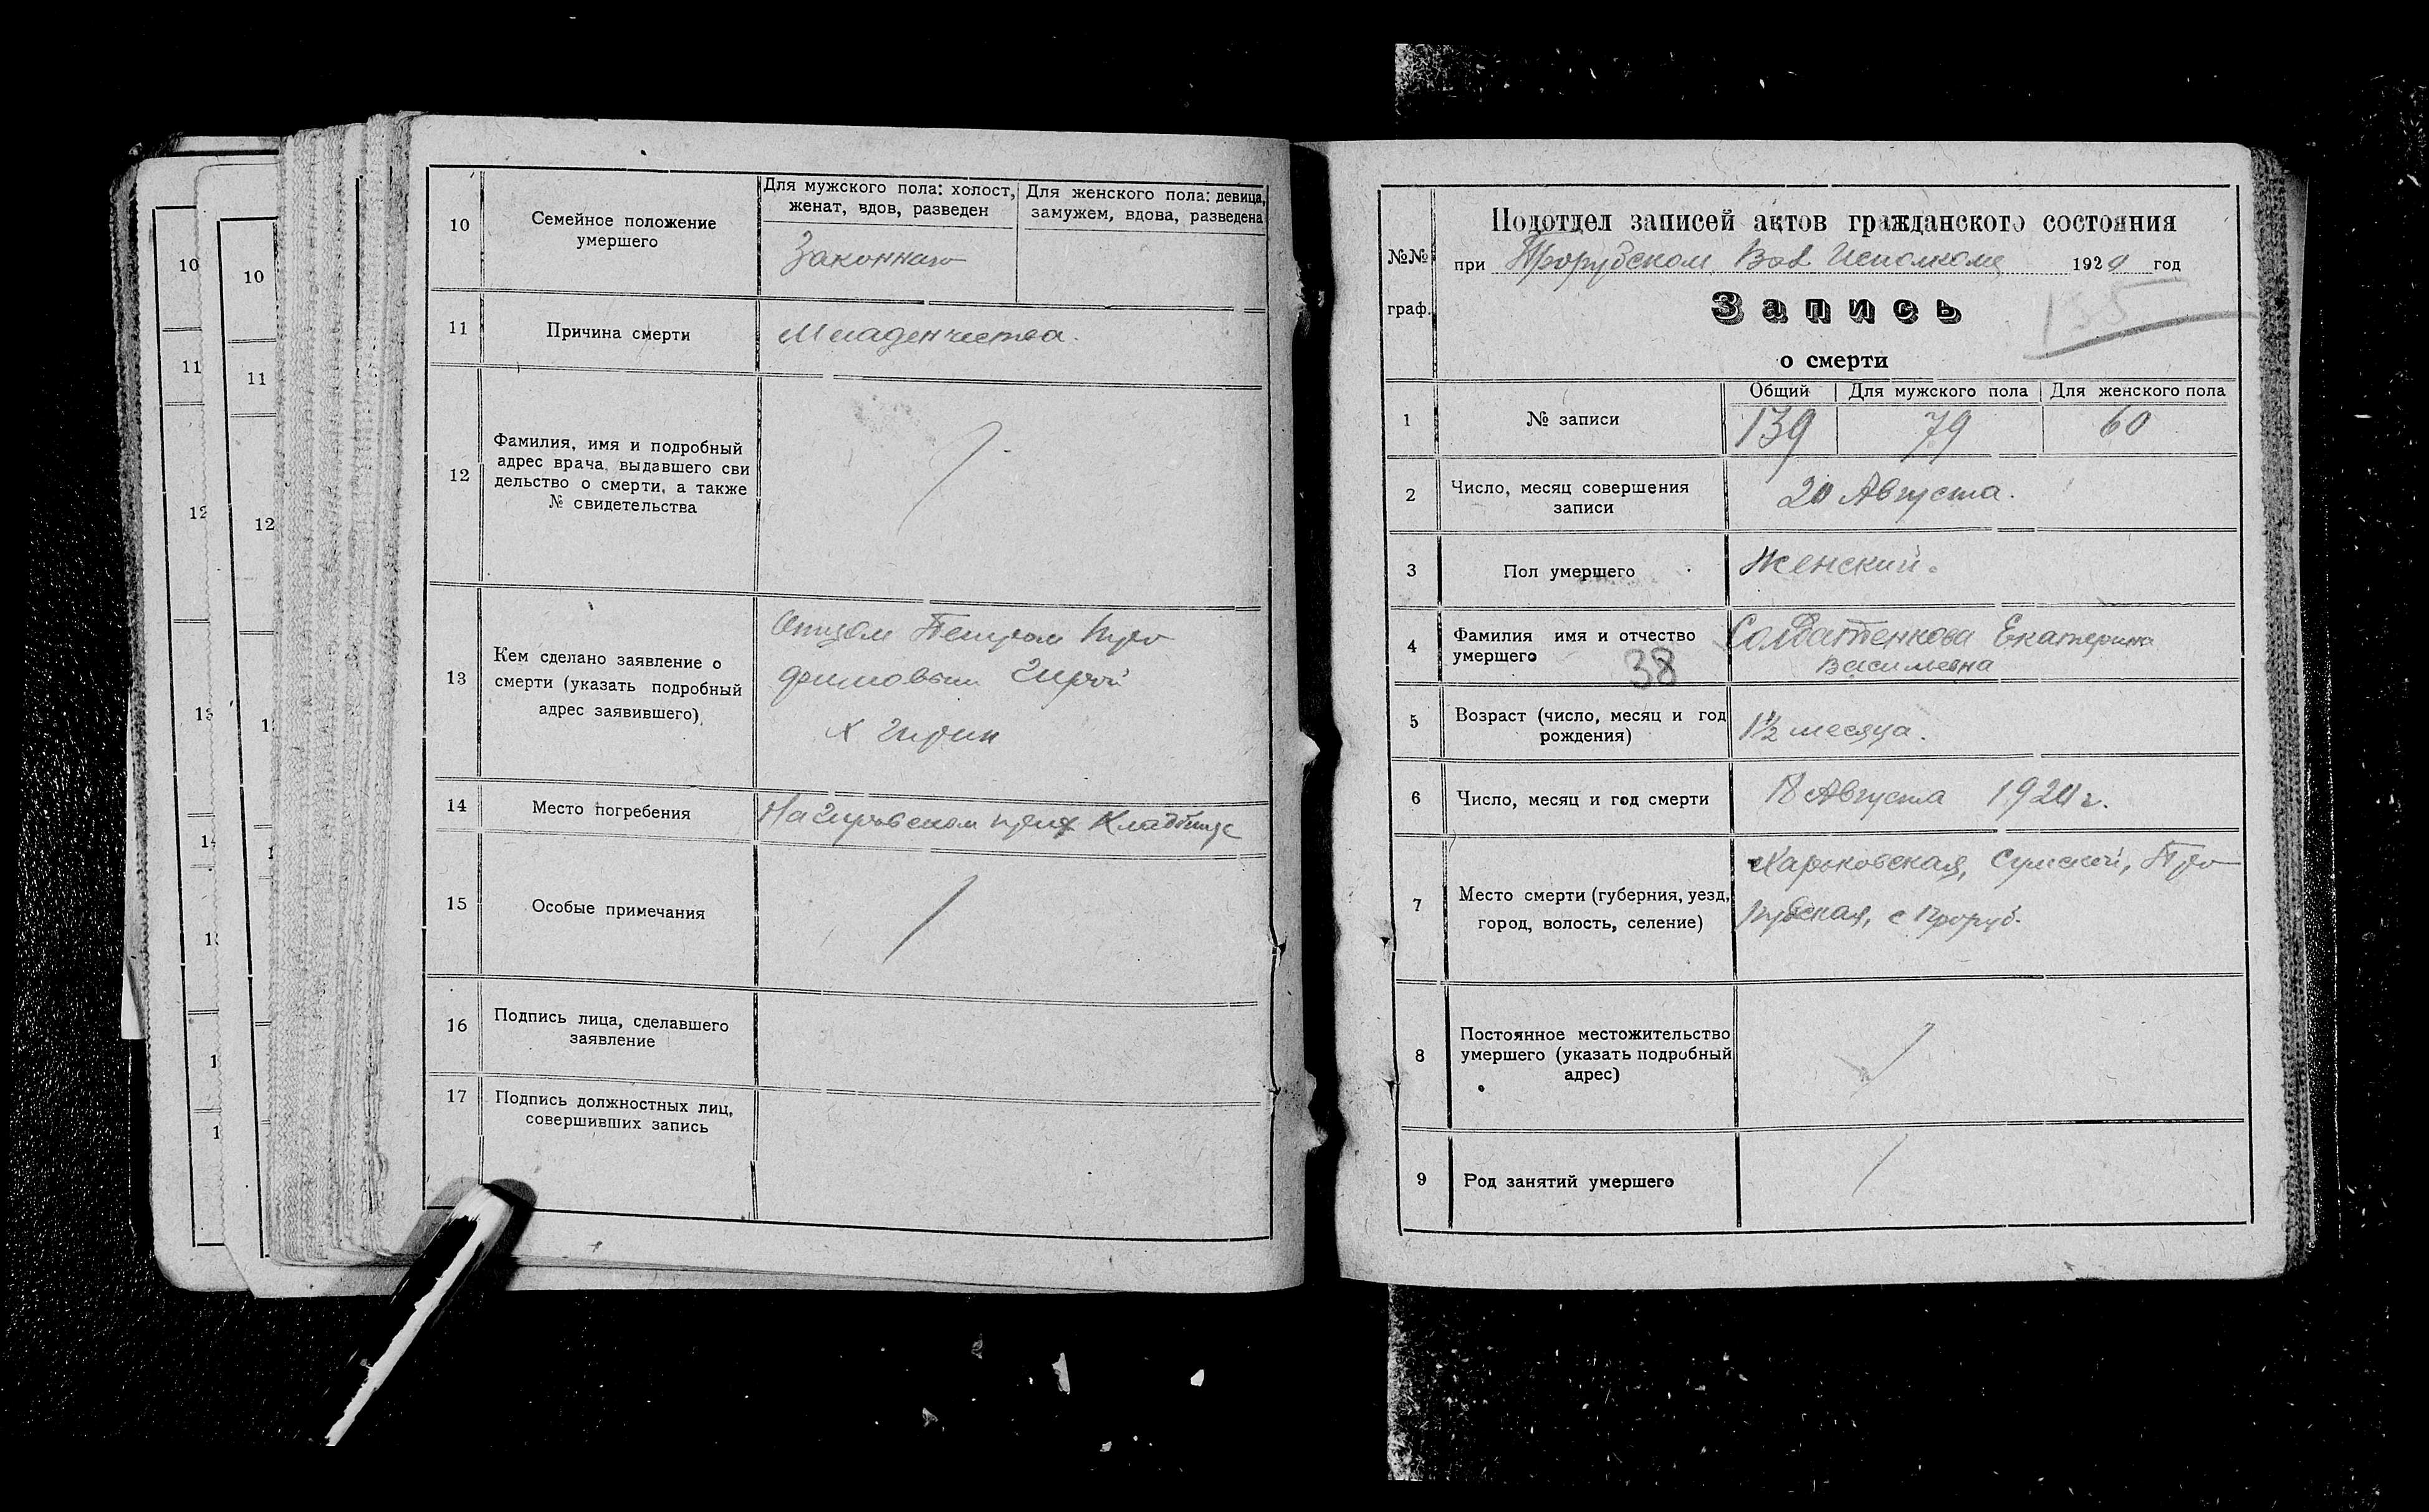 10
11
12
15
14
10
11
12
10
Семейное положение
умершего
Для мужского пола: холост,
женат, вдов, разведен
Для женского пола: девица,
замужем, вдова, разведена
Законнаго
11
Причина смерти
Младенчества.
12
Фамилия, имя и подробный
адрес врача, выдавшего сви
дельство о смерти, а также
№ свидетельства
13
Кем сделано заявление о
смерти (указать подробный
адрес заявившего)
Отцом Петром
14
Место погребения
Кладбище
15
Особые примечания
16
Подпись лица, сделавшего
заявление
17
Подпись должностных лиц,
совершивших запись
№№
граф.
Подотдел записей актов гражданского состояния
при Прорубском Исполкоме 192 год
Запись
155
о смерти
1
№ записи
Общий
Для мужского пола
Для женского пола
139
79
60
2
Число, месяц совершения
записи
20 Августа.
3
Пол умершего
Женский.
4
Фамилия имя и отчество
умершего
38
Солдатенкова Екатерина
Васильевна
5
Возраст (число, месяц и год
рождения)
1½ месяца.
6
Число, месяц и год смерти
18 Августа 1920 г.
7
Место смерти (губерния, уезд,
город, волость, селение)
Харьковская, Сумской, Про
рубская, с Проруб.
8
Постоянное местожительство
умершего (указать подробный
адрес)
9
Род занятий умершего